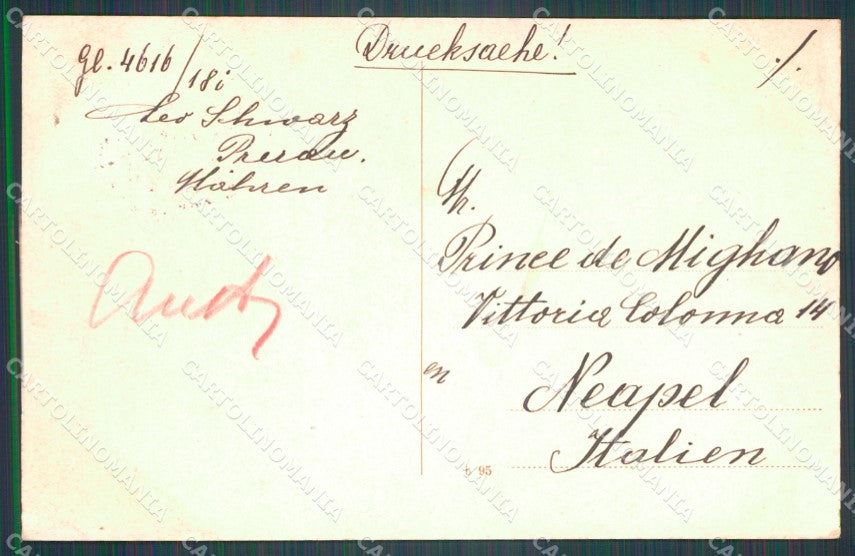 Drucksache!
Gl. 4616/18i
Leo Schwarz
Prerau.
Mähren
Prince de Mighano
Vittoria Colonna 14
en
Neapel
Italien
95
CARTOLINOMANIA